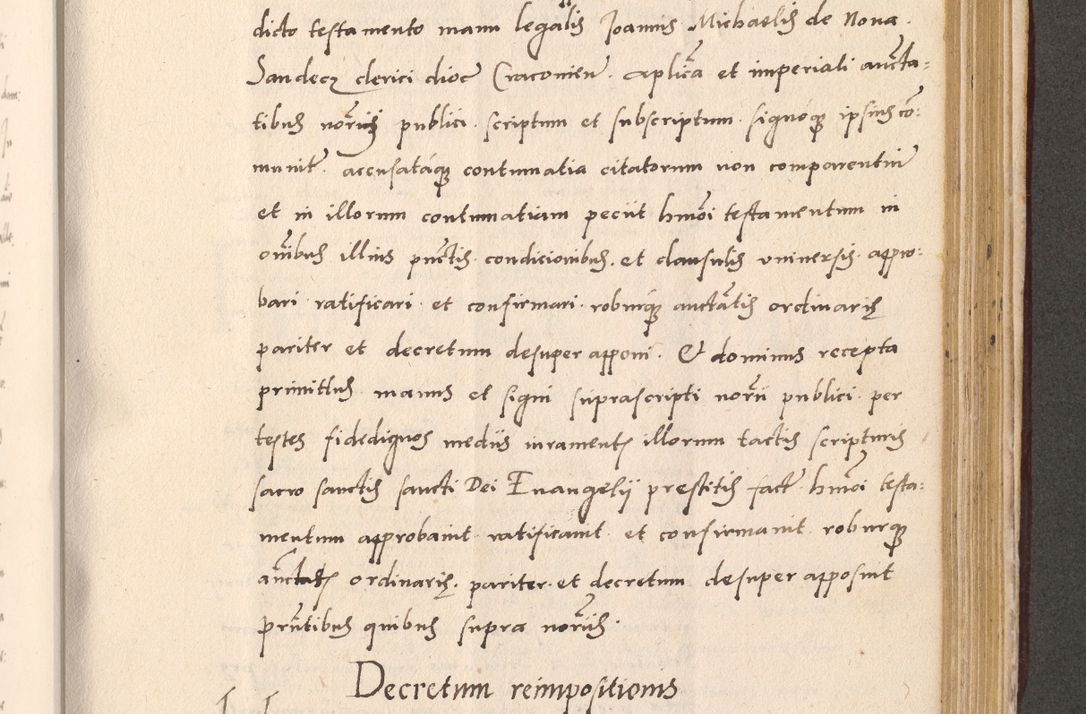 dicto testamento manu legalis Joannis Michaelis de Nova
Sandecz clerici dioc Cracovien. aplica et imperiali aucta=
tibus norius publici scriptum et subscriptum signoq ipsius co=
munit. accusataq contumatia citatorum non comparentiu
et in illorum contumatiam peciit hmoi testamentum in
omibus illius punctis condicionibus et clausulis universis appro=
bari ratificari et confirmari roburq auctatis ordinarie
pariter et decretum desuper apponi. Et dominus recepta
primittus manus et signi suprascripti norii publici per
testes fidedignos mediis iuramentis illorum tactis scripturis
sacro sanctis sancti Dei Evangelii prestitis fact hmoi testa=
mentum approbavit ratificavit et confirmavit roburq
auctatis ordinarie pariter et decretum desuper apposuit
pntibus quibus supra noriis.
Decretum reimpositionis